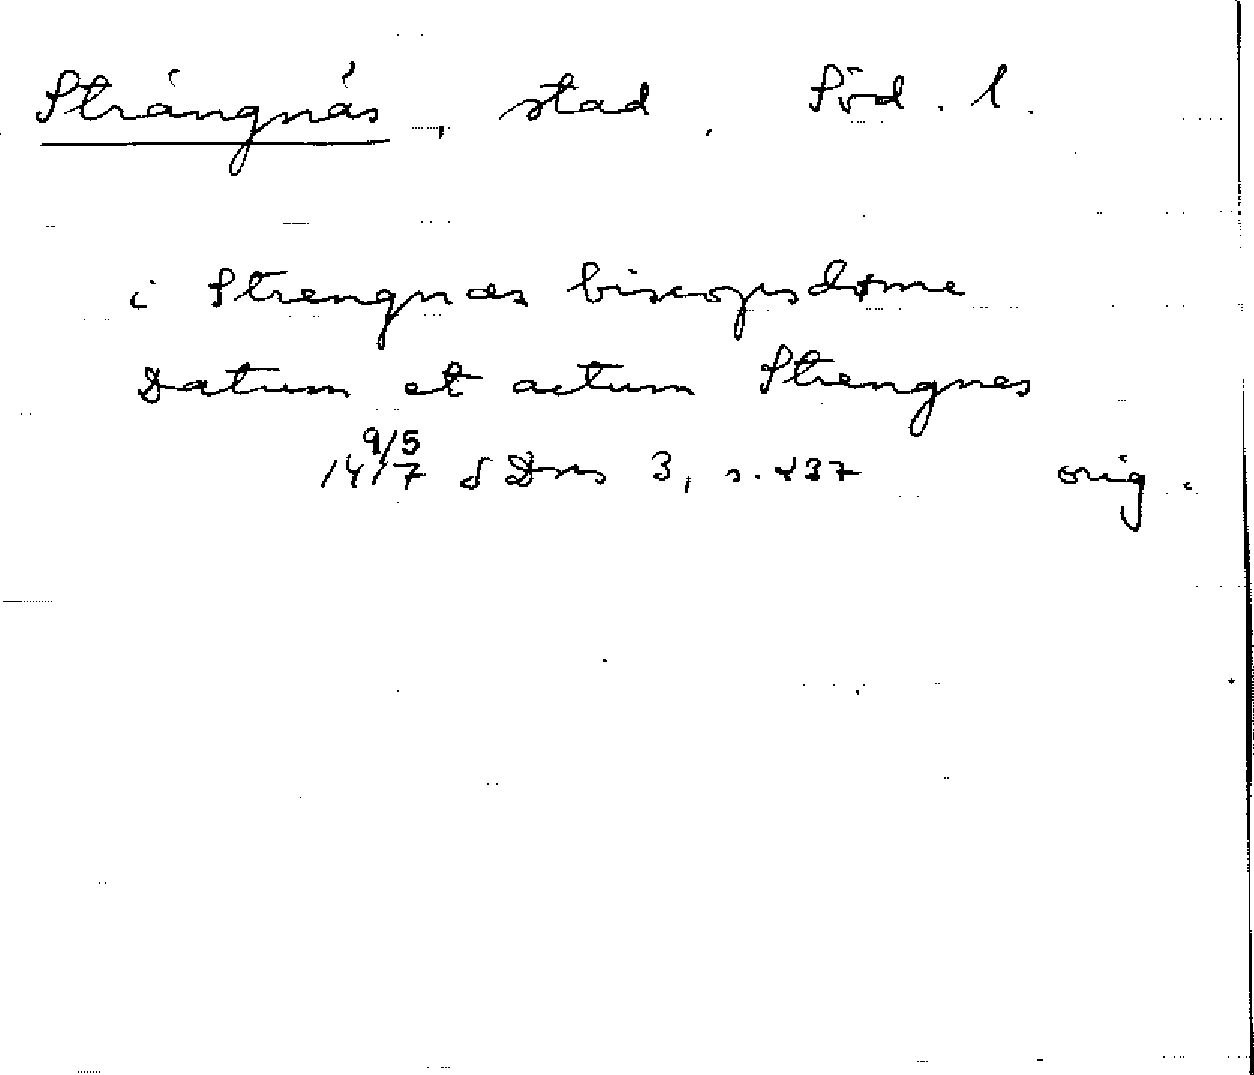 Strängnäs, stad. Söd. l.
i Strengnæs biscopsdøme
Datum et actum Strengnes
14 9/5 17 SDns 3, s. 237 orig.